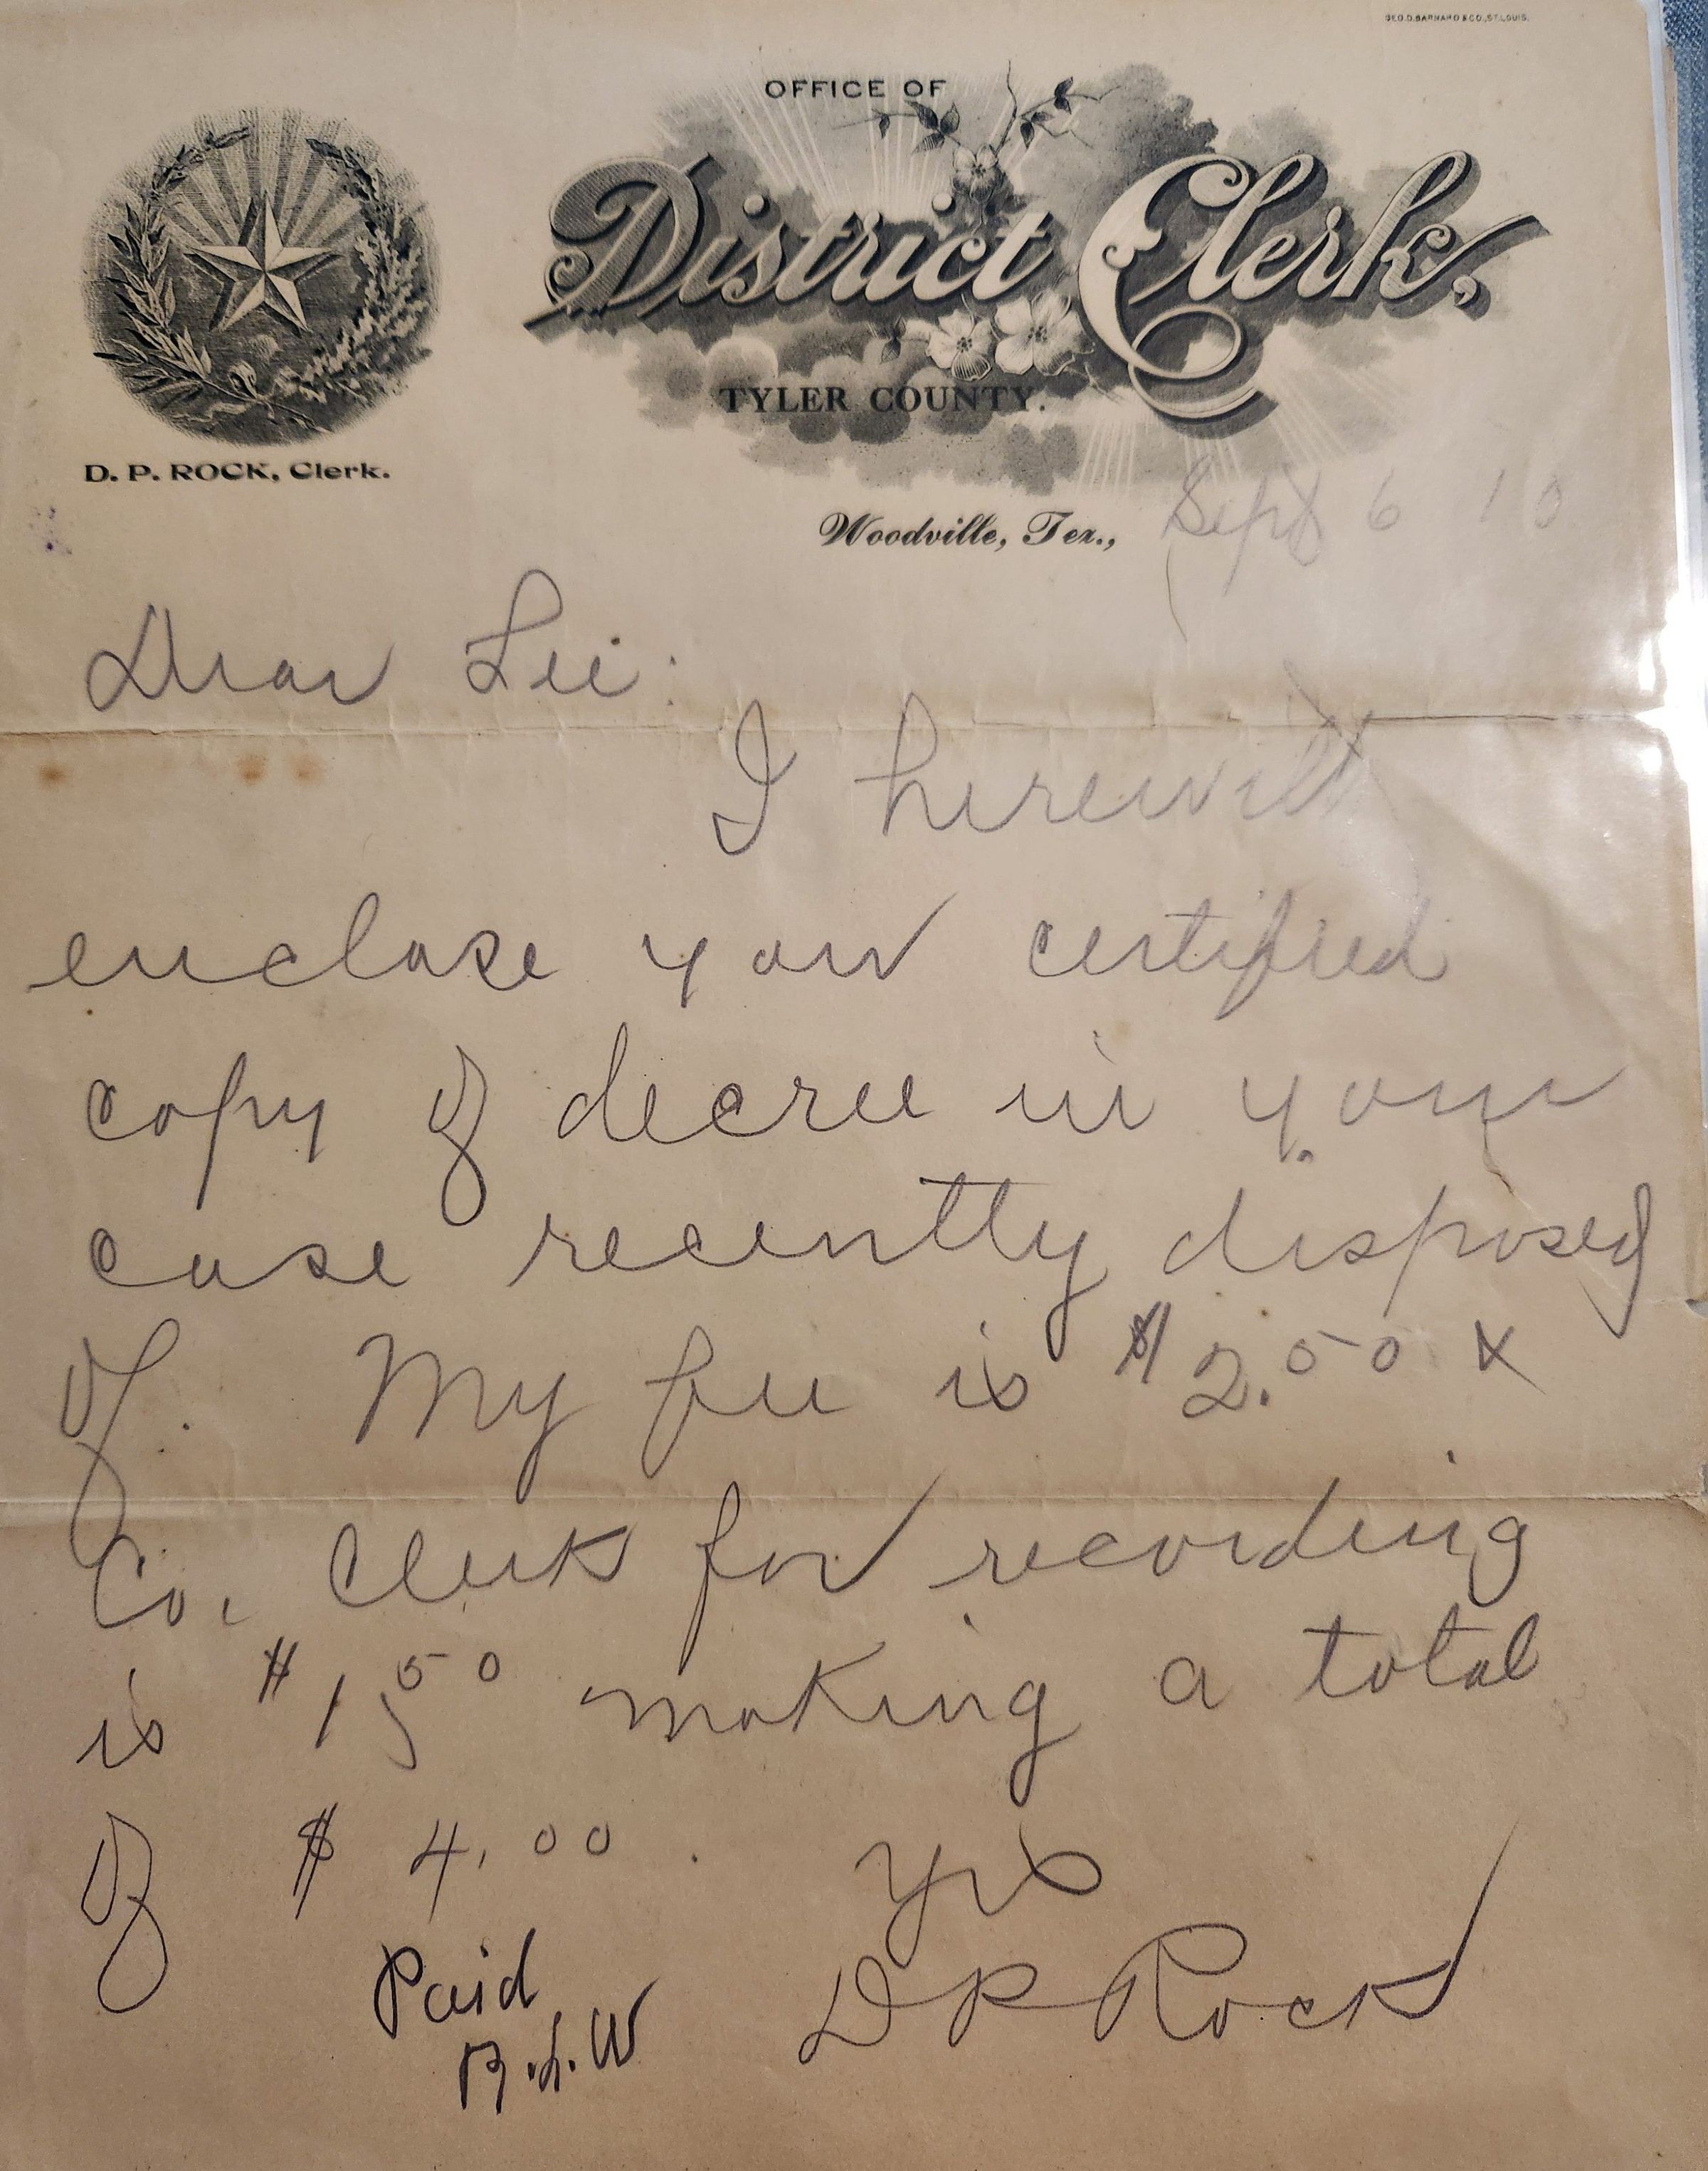 GEO. D. BARNARD & CO., ST. LOUIS.
OFFICE OF
District Clerk,
TYLER COUNTY.
D. P. ROCK, Clerk.
Woodville, Tex., Sept 6 10
Dear Lee:
I herewith
enclose your certified
copy of decree in your
case recently disposed
of. My fee is $2.50 &
Co. Clerk for recording
is $1.50 making a total
of $4.00.
Yrs
D P Rock
Paid
R.L.W